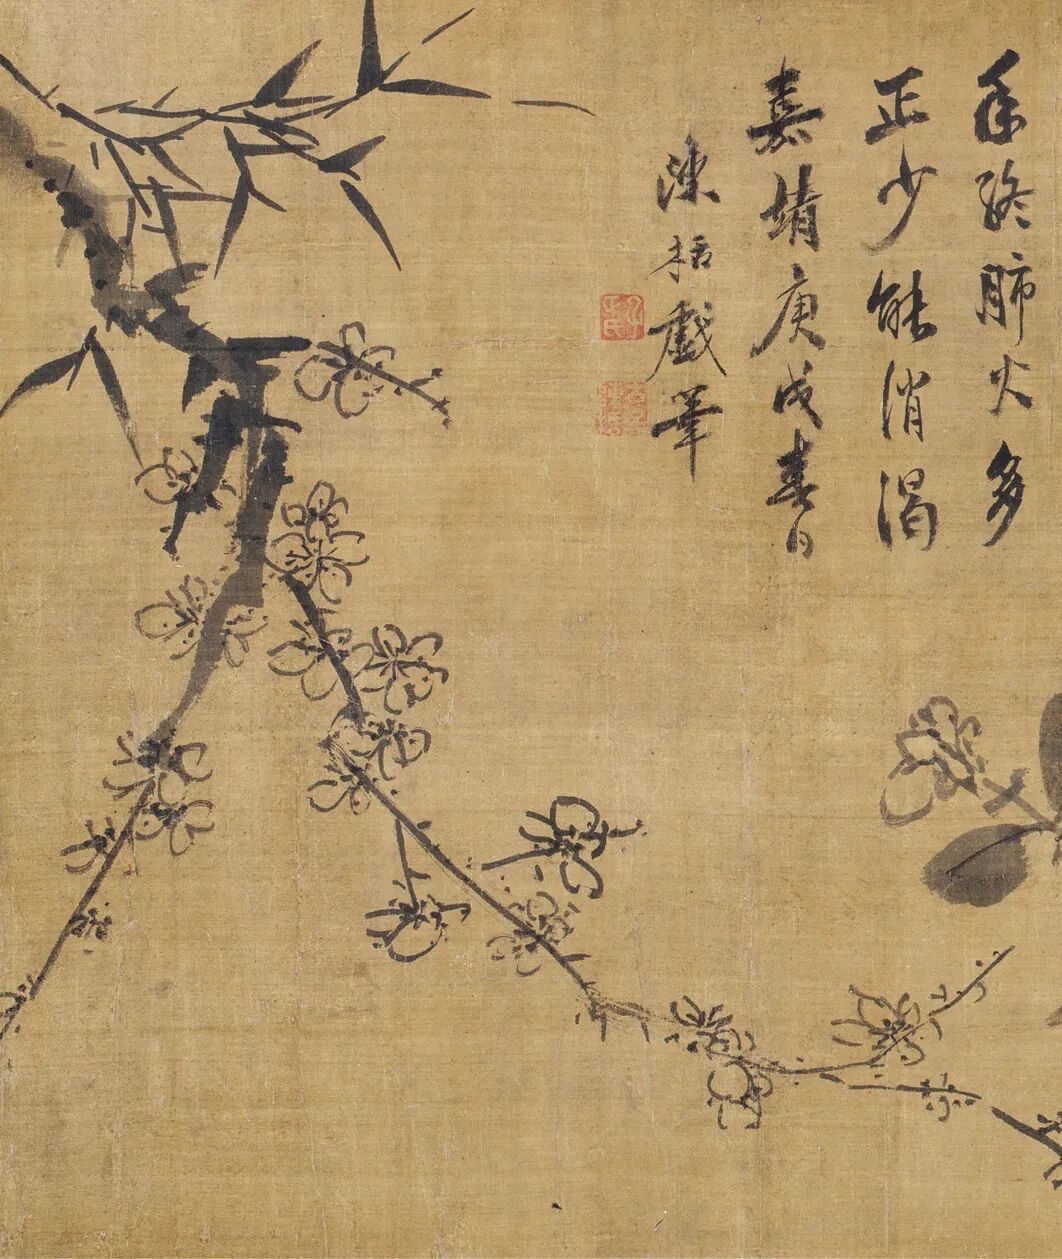 年終肺火多
正少能消渴
嘉靖庚戌春日
陳栝戲筆